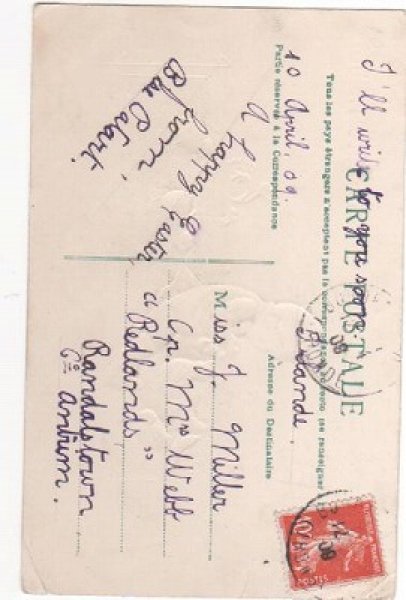 I'll write to you soon.
CARTE POSTALE
Tous les pays étrangers n'acceptent pas la correspondance au recto (se renseigner
Partie réservée à la Correspondance
Adresse du Destinataire
10 April. 09.
A happy Easter
from
Irlande.
Miss J. Miller
c/o. Mrs Webb
"Redlands"
Randalstown
Co. Antrim.
12
09
10